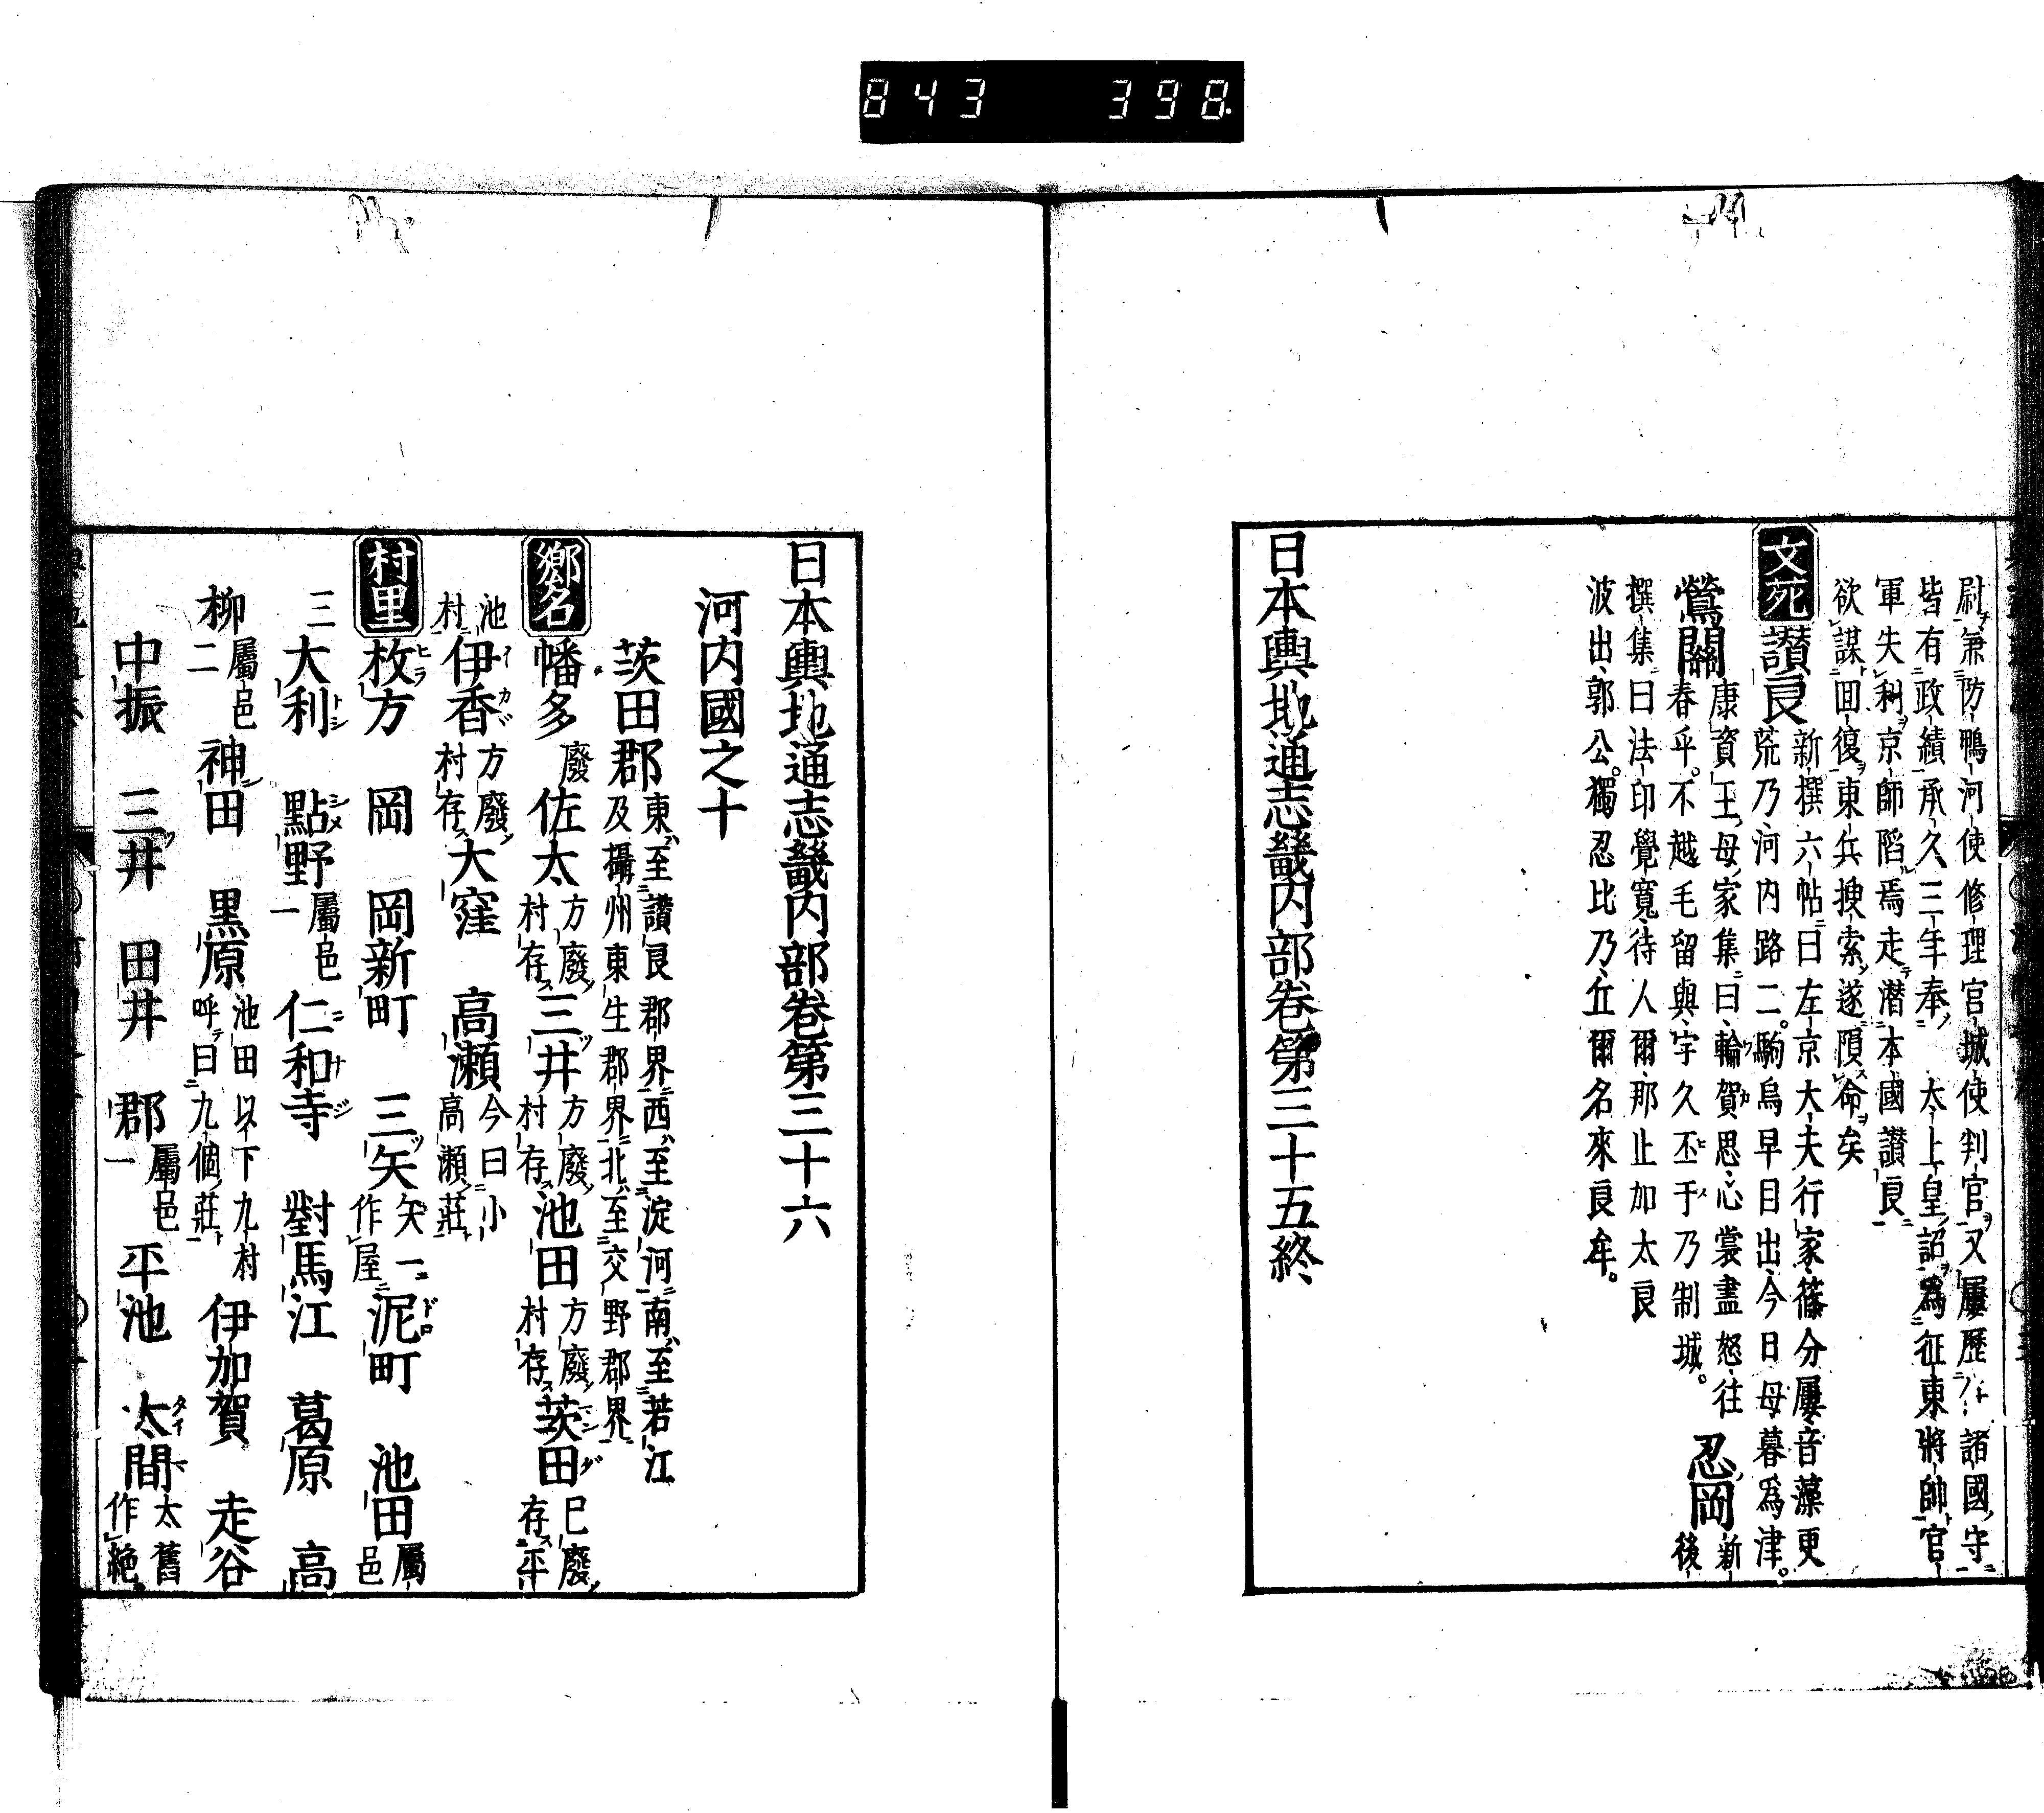 843 398
尉兼防鴨河使修理官城使判官又屢歷諸國守
皆有政績承久三年奉 太上皇詔為征東將帥官
軍失利京師陷焉走潜本國讃良
欲謀回復東兵捜索遂隕命矣
文苑 讃良 新撰六帖曰左京大夫行家篠分屢音藻更
荒乃河内路二駒烏早目出今日母暮為津
鶯關 康資王母家集曰輪賀思心裳盡怒往
春乎不越毛留與宇久丕于乃制城 忍岡 新後
撰集曰法印覺寬待人爾那止加太良
波出郭公獨忍比乃丘爾名來良牟
日本輿地通志畿内部卷第三十五終
日本輿地通志畿内部卷第三十六
河内國之十
茨田郡 東至讃良郡界西至淀河南至若江
及攝州東生郡界北至交野郡界
鄉名 幡多 廢 佐太 方廢村存 三井 方廢村存 池田 方廢村存 茨田 已廢存平
池村 伊香 方廢村存 大窪 高瀬 今曰小高瀬莊
村里 枚方 岡 岡新町 三矢 矢一作屋 泥町 池田 屬邑
三 大利 點野 屬邑一 仁和寺 對馬江 葛原 高
柳 屬邑二 神田 黒原 池田以下九村呼曰九個莊 伊加賀 走谷
中振 三井 田井 郡 屬邑一 平池 太間 太舊作絶